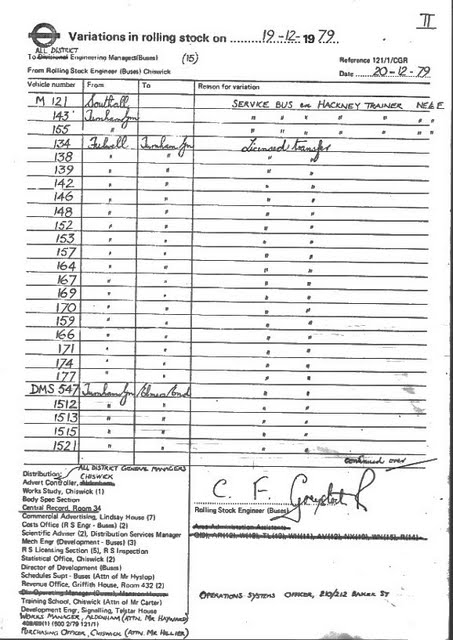 II
Variations in rolling stock on 19-12-1979
ALL DISTRICT
To Divisional Engineering Managers (Buses) (15)
Reference 121/1/CGR
From Rolling Stock Engineer (Buses) Chiswick
Date 20-12-79
Vehicle number From To Reason for variation
M 121 Southall SERVICE BUS ex HACKNEY TRAINER NELE
143 Turnham Gn " " " " " "
155 " " " " " " "
134 Fulwell Turnham Gn Licensed transfer
138 " " " "
139 " " " "
142 " " " "
146 " " " "
148 " " " "
152 " " " "
153 " " " "
157 " " " "
164 " " " "
167 " " " "
169 " " " "
170 " " " "
159 " " " "
166 " " " "
171 " " " "
174 " " " "
177 " " " "
DMS 547 Turnham Gn Elmers End " "
1512 " " " "
1513 " " " "
1515 " " " "
1521 " " " "
continued over
Distribution: ALL DISTRICT GENERAL MANAGERS
CHISWICK
Advert Controller,
Works Study, Chiswick (1)
Body Spec Section
Central Record, Room 34
Commercial Advertising, Lindsay House (7)
Costs Office (R S Engr - Buses) (2)
Scientific Adviser (2), Distribution Services Manager
Mech Engr (Development - Buses) (3)
R S Licensing Section (5), R S Inspection
Statistical Office, Chiswick (2)
Director of Development (Buses)
Schedules Supt - Buses (Attn of Mr Hyslop)
Revenue Office, Griffith House, Room 432 (2)
Training School, Chiswick (Attn of Mr Carter)
Development Engr, Signalling, Telstar House
WORKS MANAGER, ALDENHAM (ATTN. MR HAYWARD)
PURCHASING OFFICER, CHISWICK (ATTN MR HILLIER)
C. F.
Rolling Stock Engineer (Buses)
OPERATIONS SYSTEMS OFFICER, 210/212 BAKER ST